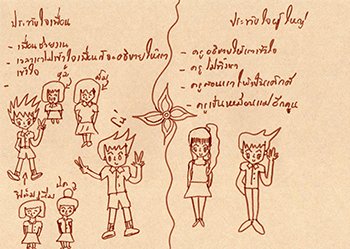 ประทับใจเพื่อน
- เพื่อนช่วยงาน
- เวลาเราไม่เข้าใจเพื่อนก็จะอธิบายให้เรา
เข้าใจ
ประทับใจครูใหญ่
- ครูอธิบายให้เราเข้าใจ
- ครูไม่ตีเรา
- ครูสอนเราให้เป็นเด็กดี
- ครูเป็นเหมือนแม่อีกคน